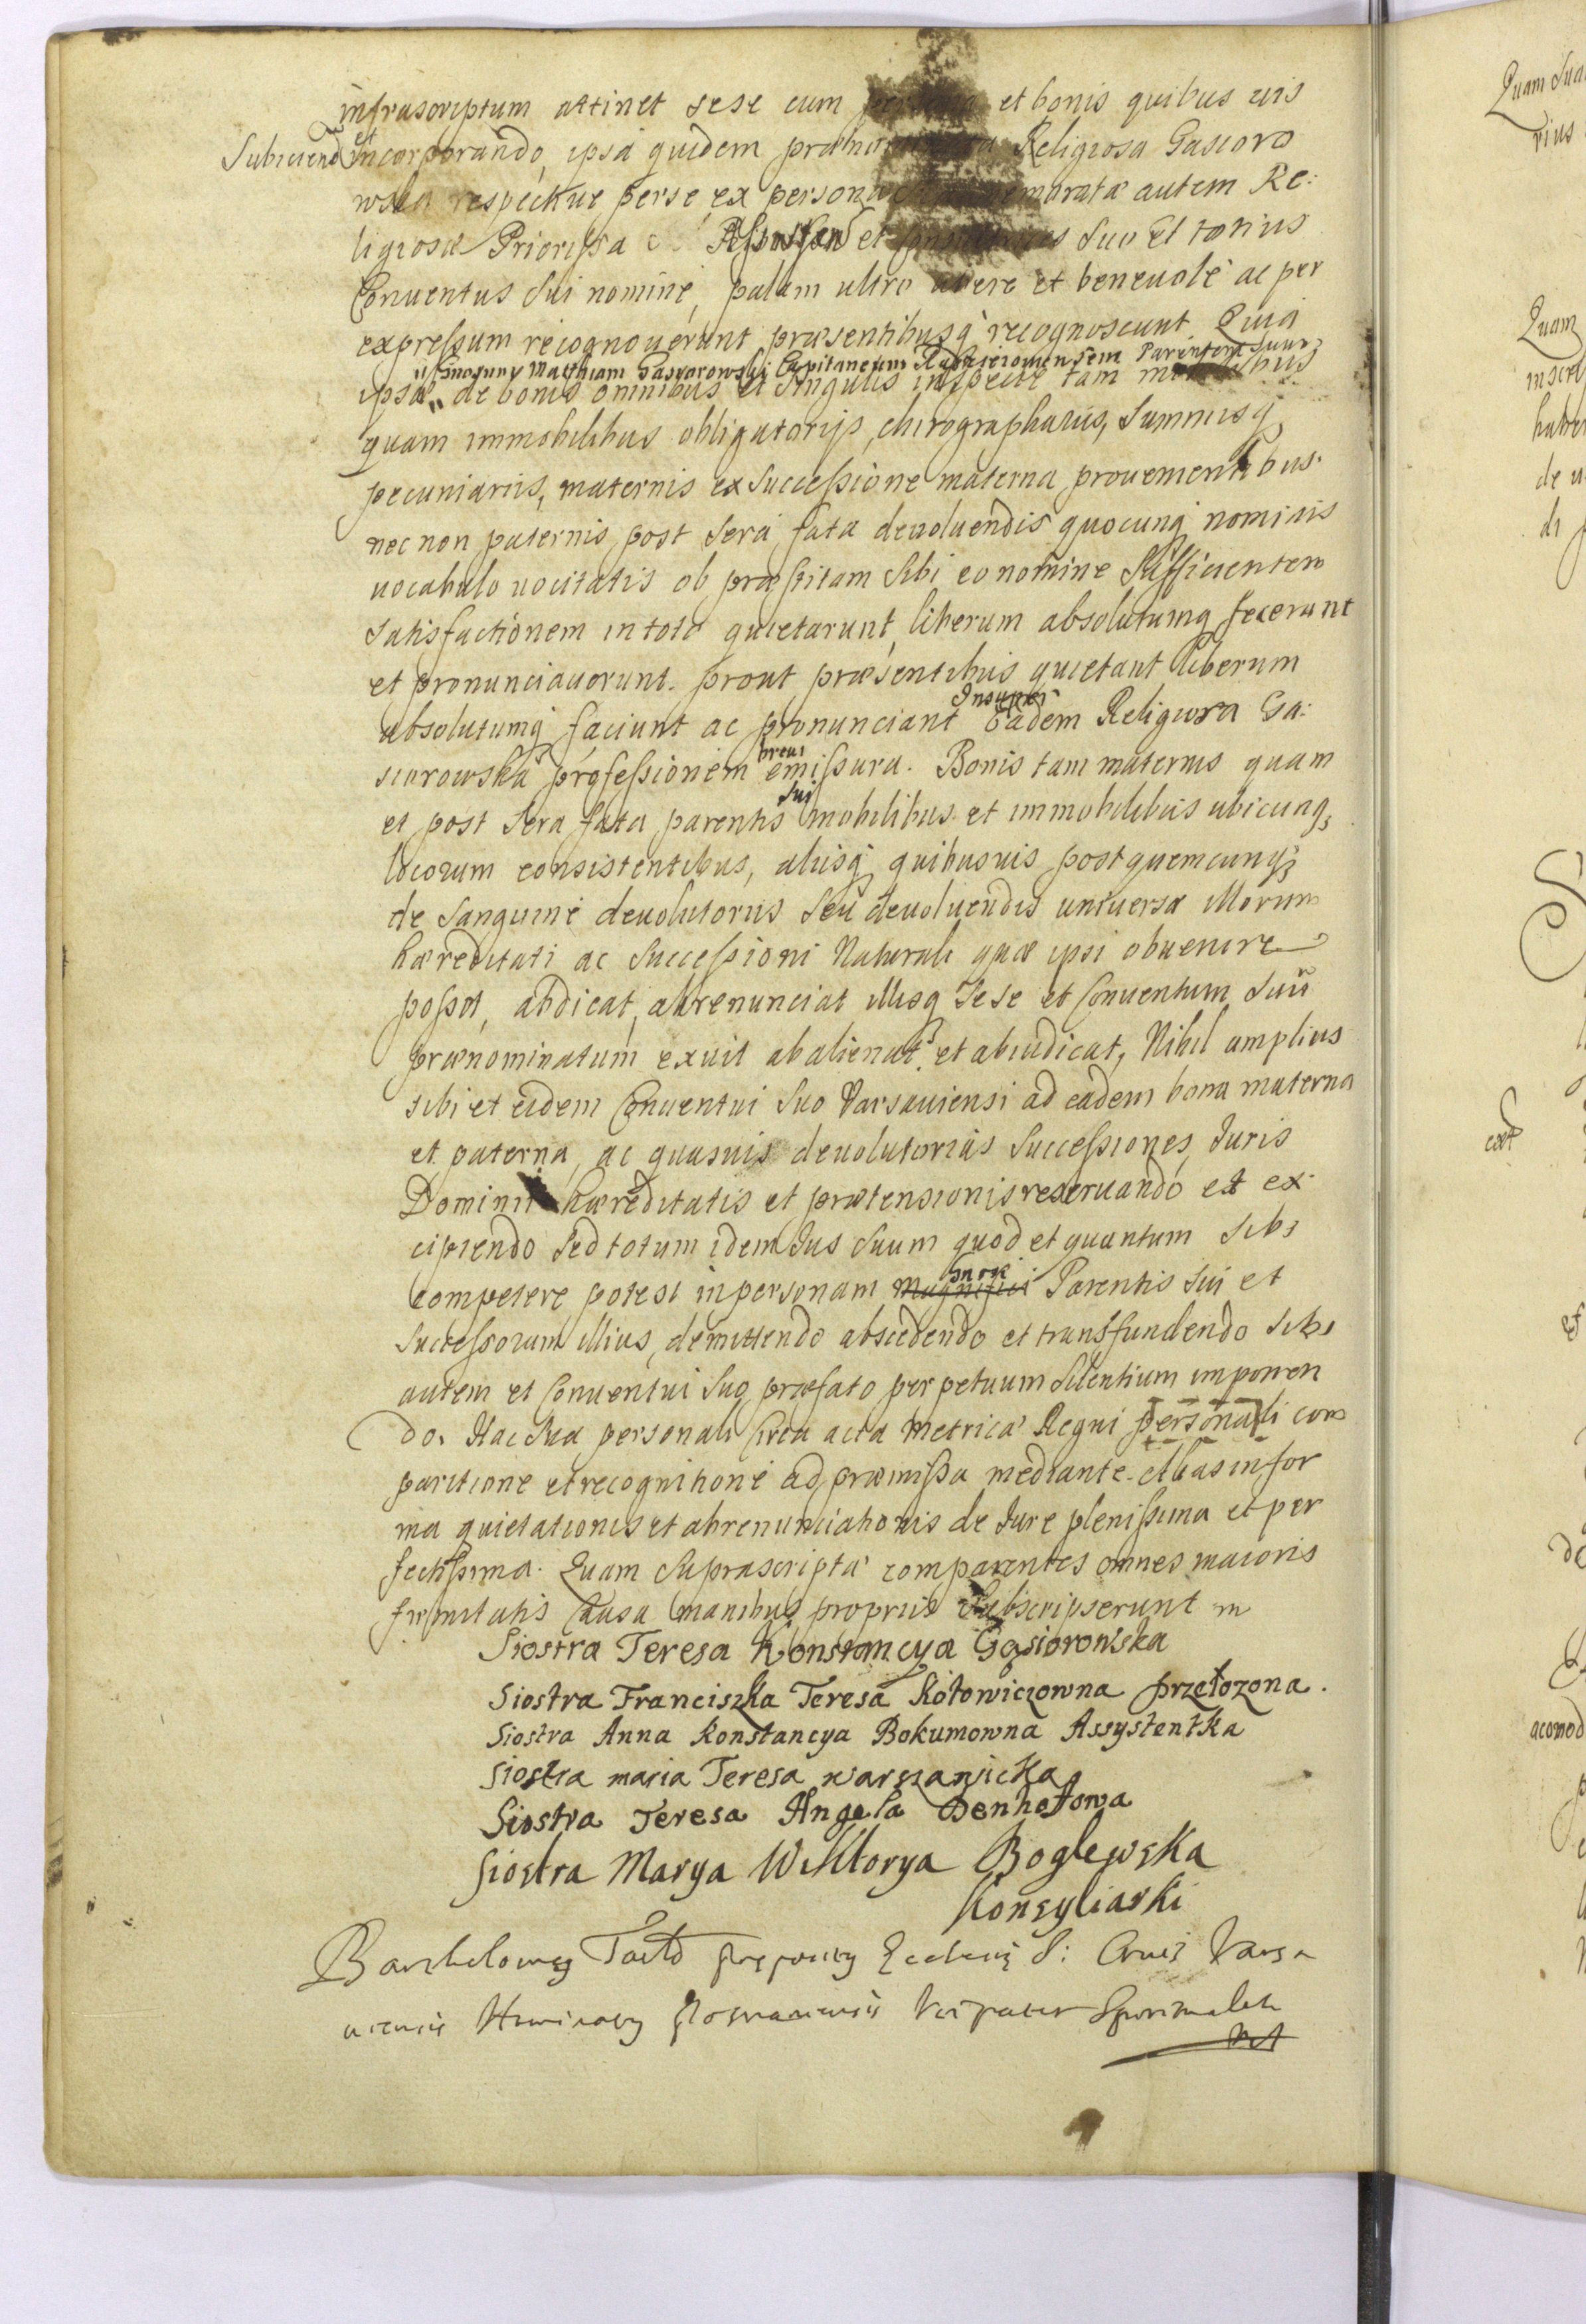 infrascriptum attinet sese cum persona et bonis quibus vis
Subiiciend et incorporando, ipsa quidem prænominata Religiosa Gasioro
wska respective per se, ex persona memorata autem Re:
ligiosæ Priorissa et suo Et totius
Conventus sui nomine, palam ultro libere et benevole ac per
expressum recognoverunt præsentibusq recognoscunt Quia
Gnosum Mathiam Gasiorowski Capitaneum Parentem suum
ipsæ de bonis omnibus et singulis in specie tam mobilibus
quam immobilibus obligatorijs, chirographariis, summisq
pecuniariis, maternis ex successione materna provenientibus
nec non paternis post sera fata devoluendis quocunq nominis
vocabulo vocitatis ob præstitam sibi eo nomine sufficientem
satisfactionem in toto quietarunt liberum absolutumq fecerunt
et pronunciaverunt. prout præsentibus quietant liberum
absolutumq faciunt ac pronunciant Insuper Eadem Religiosa Ga:
siorowska professionem brevi emissura. Bonis tam maternis quam
et post sera fata parentis sui mobilibus et immobilibus ubicunq
locorum consistentibus, aliisq quibusvis post quemcunq
de sanguine devolutoriis seu devoluendis universæ
hæreditati ac successioni Naturali quæ ipsi obvenire
posset, abdicat, abrenunciat illisq sese et Conventum suũ
prænominatum exuit abalienat et abiudicat, Nihil amplius
sibi et eidem Conventui suo Varsaviensi ad eadem bona materna
et paterna, ac quasvis devolutorias successiones, Juris
Dominii hæreditatis et prætensionis reservando et ex
cipiendo sed totum idem Jus suum quod et quantum sibi
competere potest in personam Magnifici Gnosi Parentis sui et
successorum illius, demittendo abscedendo et transfundendo sibi
autem et Conventui suo præfato perpetuum silentium imponen
do. Hac sua personali circa acta Metrica Regni personali com
paritione et recognitione ad præmissa mediante. et has in for
ma quietationis et abrenunciationis de Jure plenissima et per
fectissima. Quam suprascripta comparentes omnes maioris
firmitatis causa manibus propriis subscripserunt m
Siostra Teresa Konstancya Gąsiorowska
Siostra Franciszka Teresa Kotowiczowna przełozona.
Siostra Anna Konstancya Bokumowna Assystentka
Siostra maria Teresa warszawicka
Siostra Teresa Angela Denhofowa
Siostra Marya Wiktorya Boglewska
Konsyliarki
Barthelomeg Tarło præpositg Ecclesię S: Crucis Varsa
viensis Posnaniensis